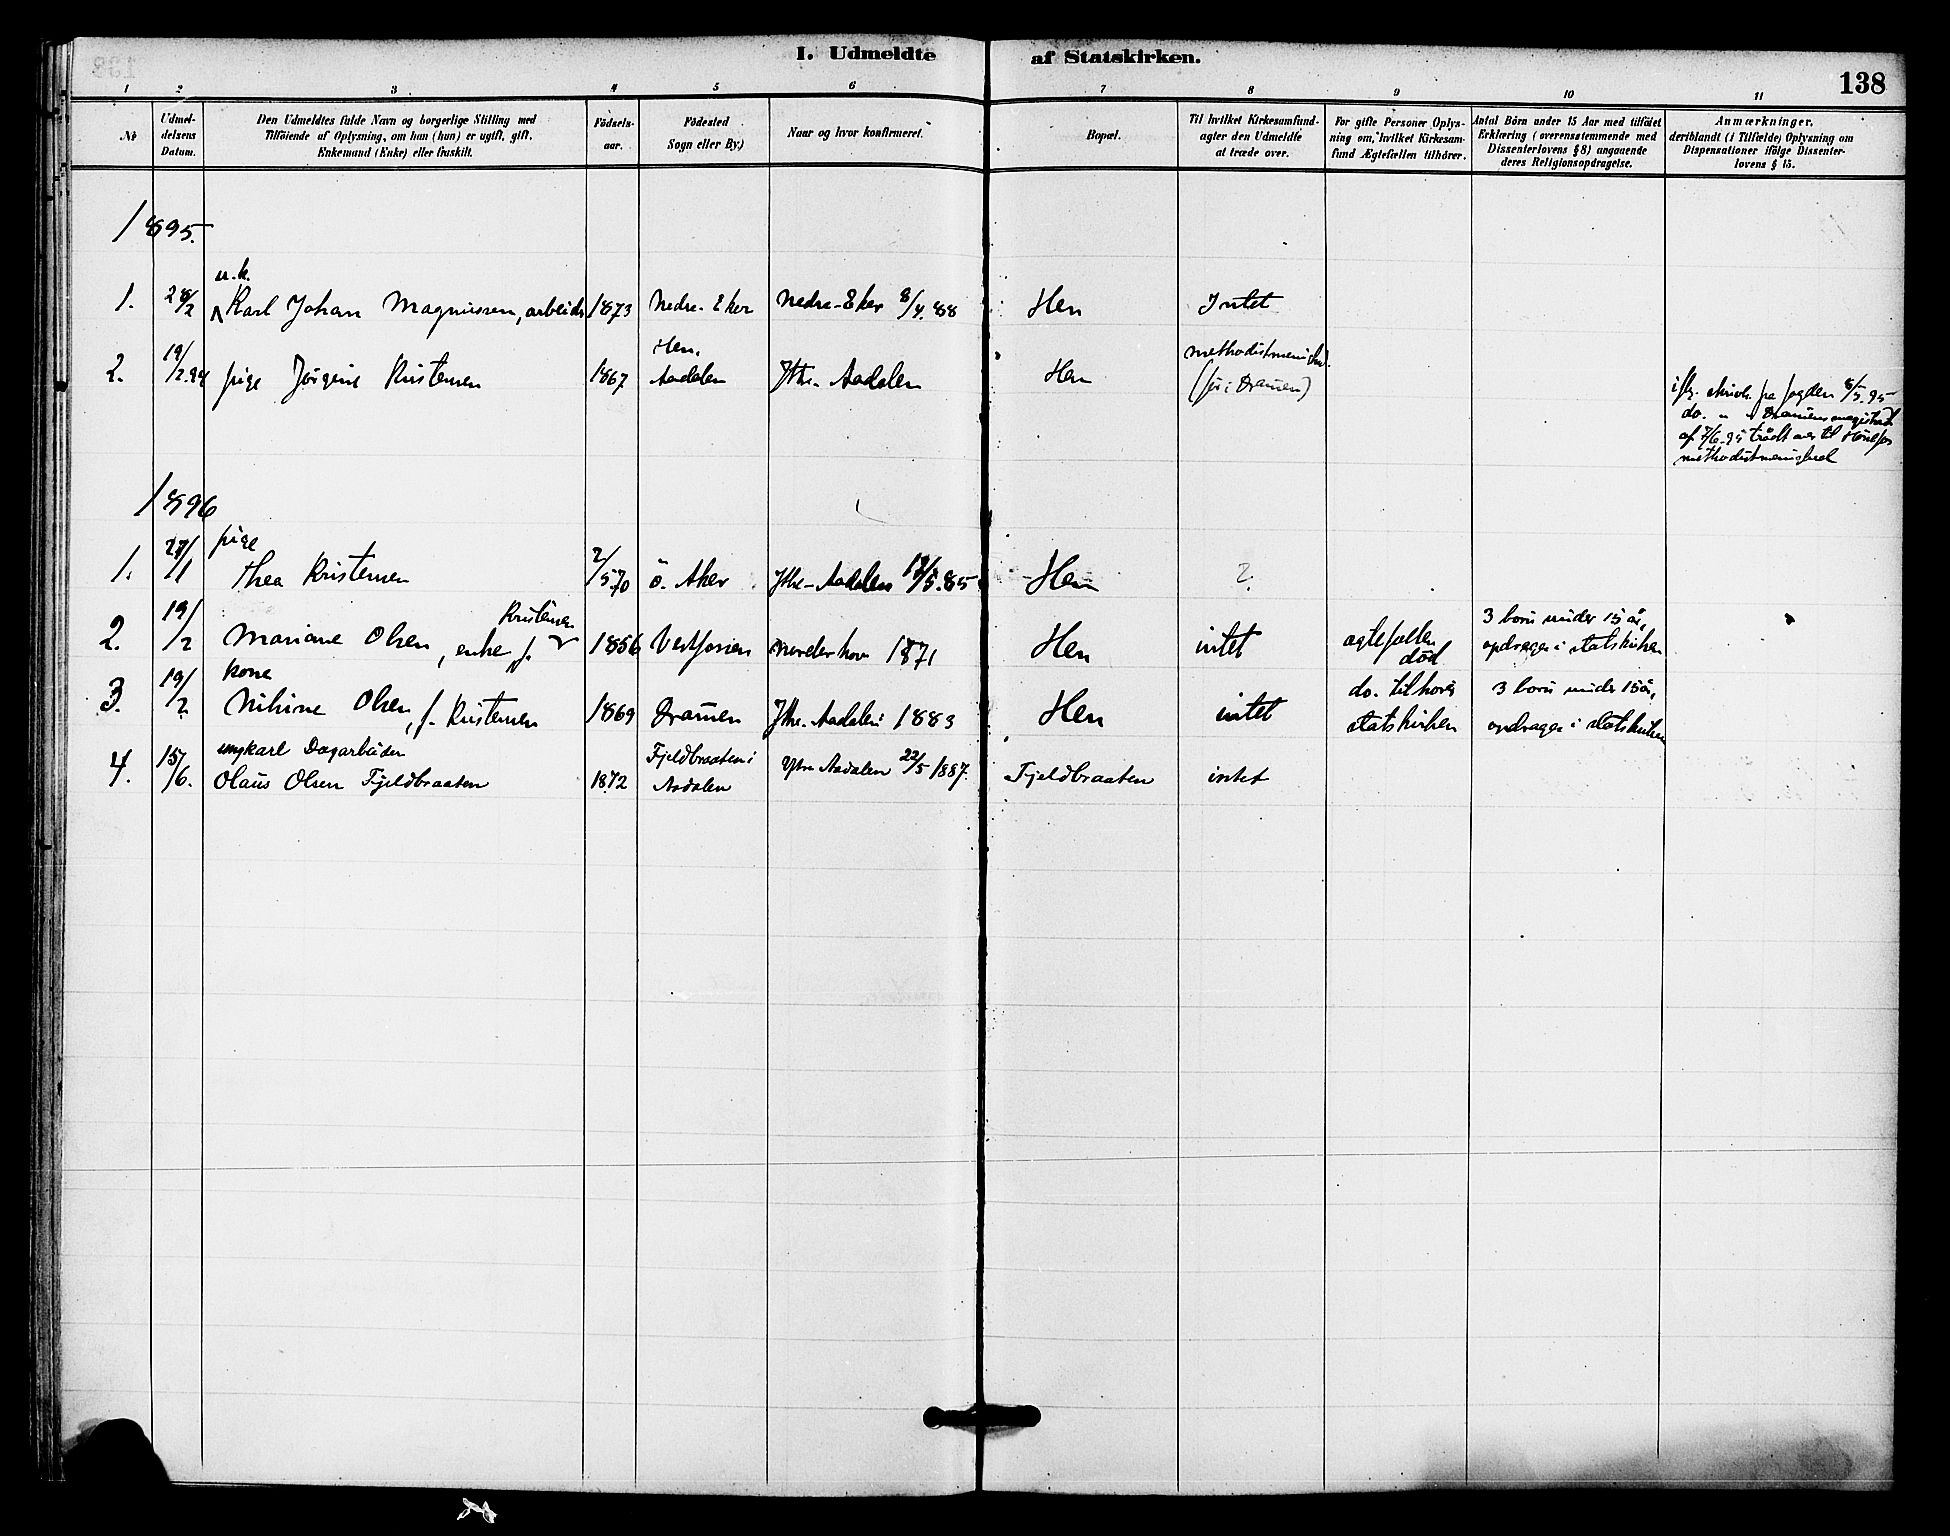 I. Udmeldte af Statskirken.
138
1 2 3 4 5 6 7 8 9 10 11
Nr
Udmel-
delsens
Datum.
Den Udmeldtes fulde Navn og borgerlige Stilling med
Tilføiende af Oplysning, om han (hun) er ugift, gift,
Enkemand (Enke) eller fraskilt.
Fødsels-
aar.
Fødested
Sogn eller By.)
Naar og hvor konfirmeret.
Bopæl.
Til hvilket Kirkesamfund
agter den Udmeldte
at træde over.
For gifte Personer Oplys-
ning om, hvilket Kirkesam-
fund Ægtefællen tilhører.
Antal Börn under 15 Aar med tilföiet
Erklæring (overensstemmende med
Dissenterlovens § 8) angaaende
deres Religionsopdragelse.
Anmærkninger,
deriblandt (i Tilfælde) Oplysning om
Dispensationer ifölge Dissenter-
lovens § 15.
1895.
u.k.
1. 28/2 Karl Johan Magnussen, arbeider 1873 Nedre-Eker Nedre-Eker 8/4.88 Hen Intet
2. 19/2.94 pige Jørgine Kristensen 1867 Hen, Aadalen Ytre-Aadalen Hen methodistmenighed
(før i Dramen)
iflg. skriv. fra fogden 8/5.95
do. " " Dramens magistrat
af 7/6.95 trådt over til Hönefos
methodistmenighed
1896
pige
1. 27/1 Thea Kristensen 2/5.70 ö. Aker Ytre-Aadalen 17/5.85 Hen ?
2. 19/2 Mariane Olsen, enke f. Kristensen 1856 Vestfossen Norderhov 1871 Hen intet ægtefællen
död
3 born under 15 år,
opdrages i statskirken
kone
3. 19/2 Olsen, f. Kristensen 1869 Dramen Ytre-Aadalen 1883 Hen intet do. tilhører
statskirken
3 born under 15 år,
opdrages i statskirken
ungkarl Dagarbeider
4. 15/6. Olaus Olsen Fjeldbraaten 1872 Fjeldbraaten i
Aadalen
Ytre Aadalen 22/5 1887. Fjeldbraaten intet